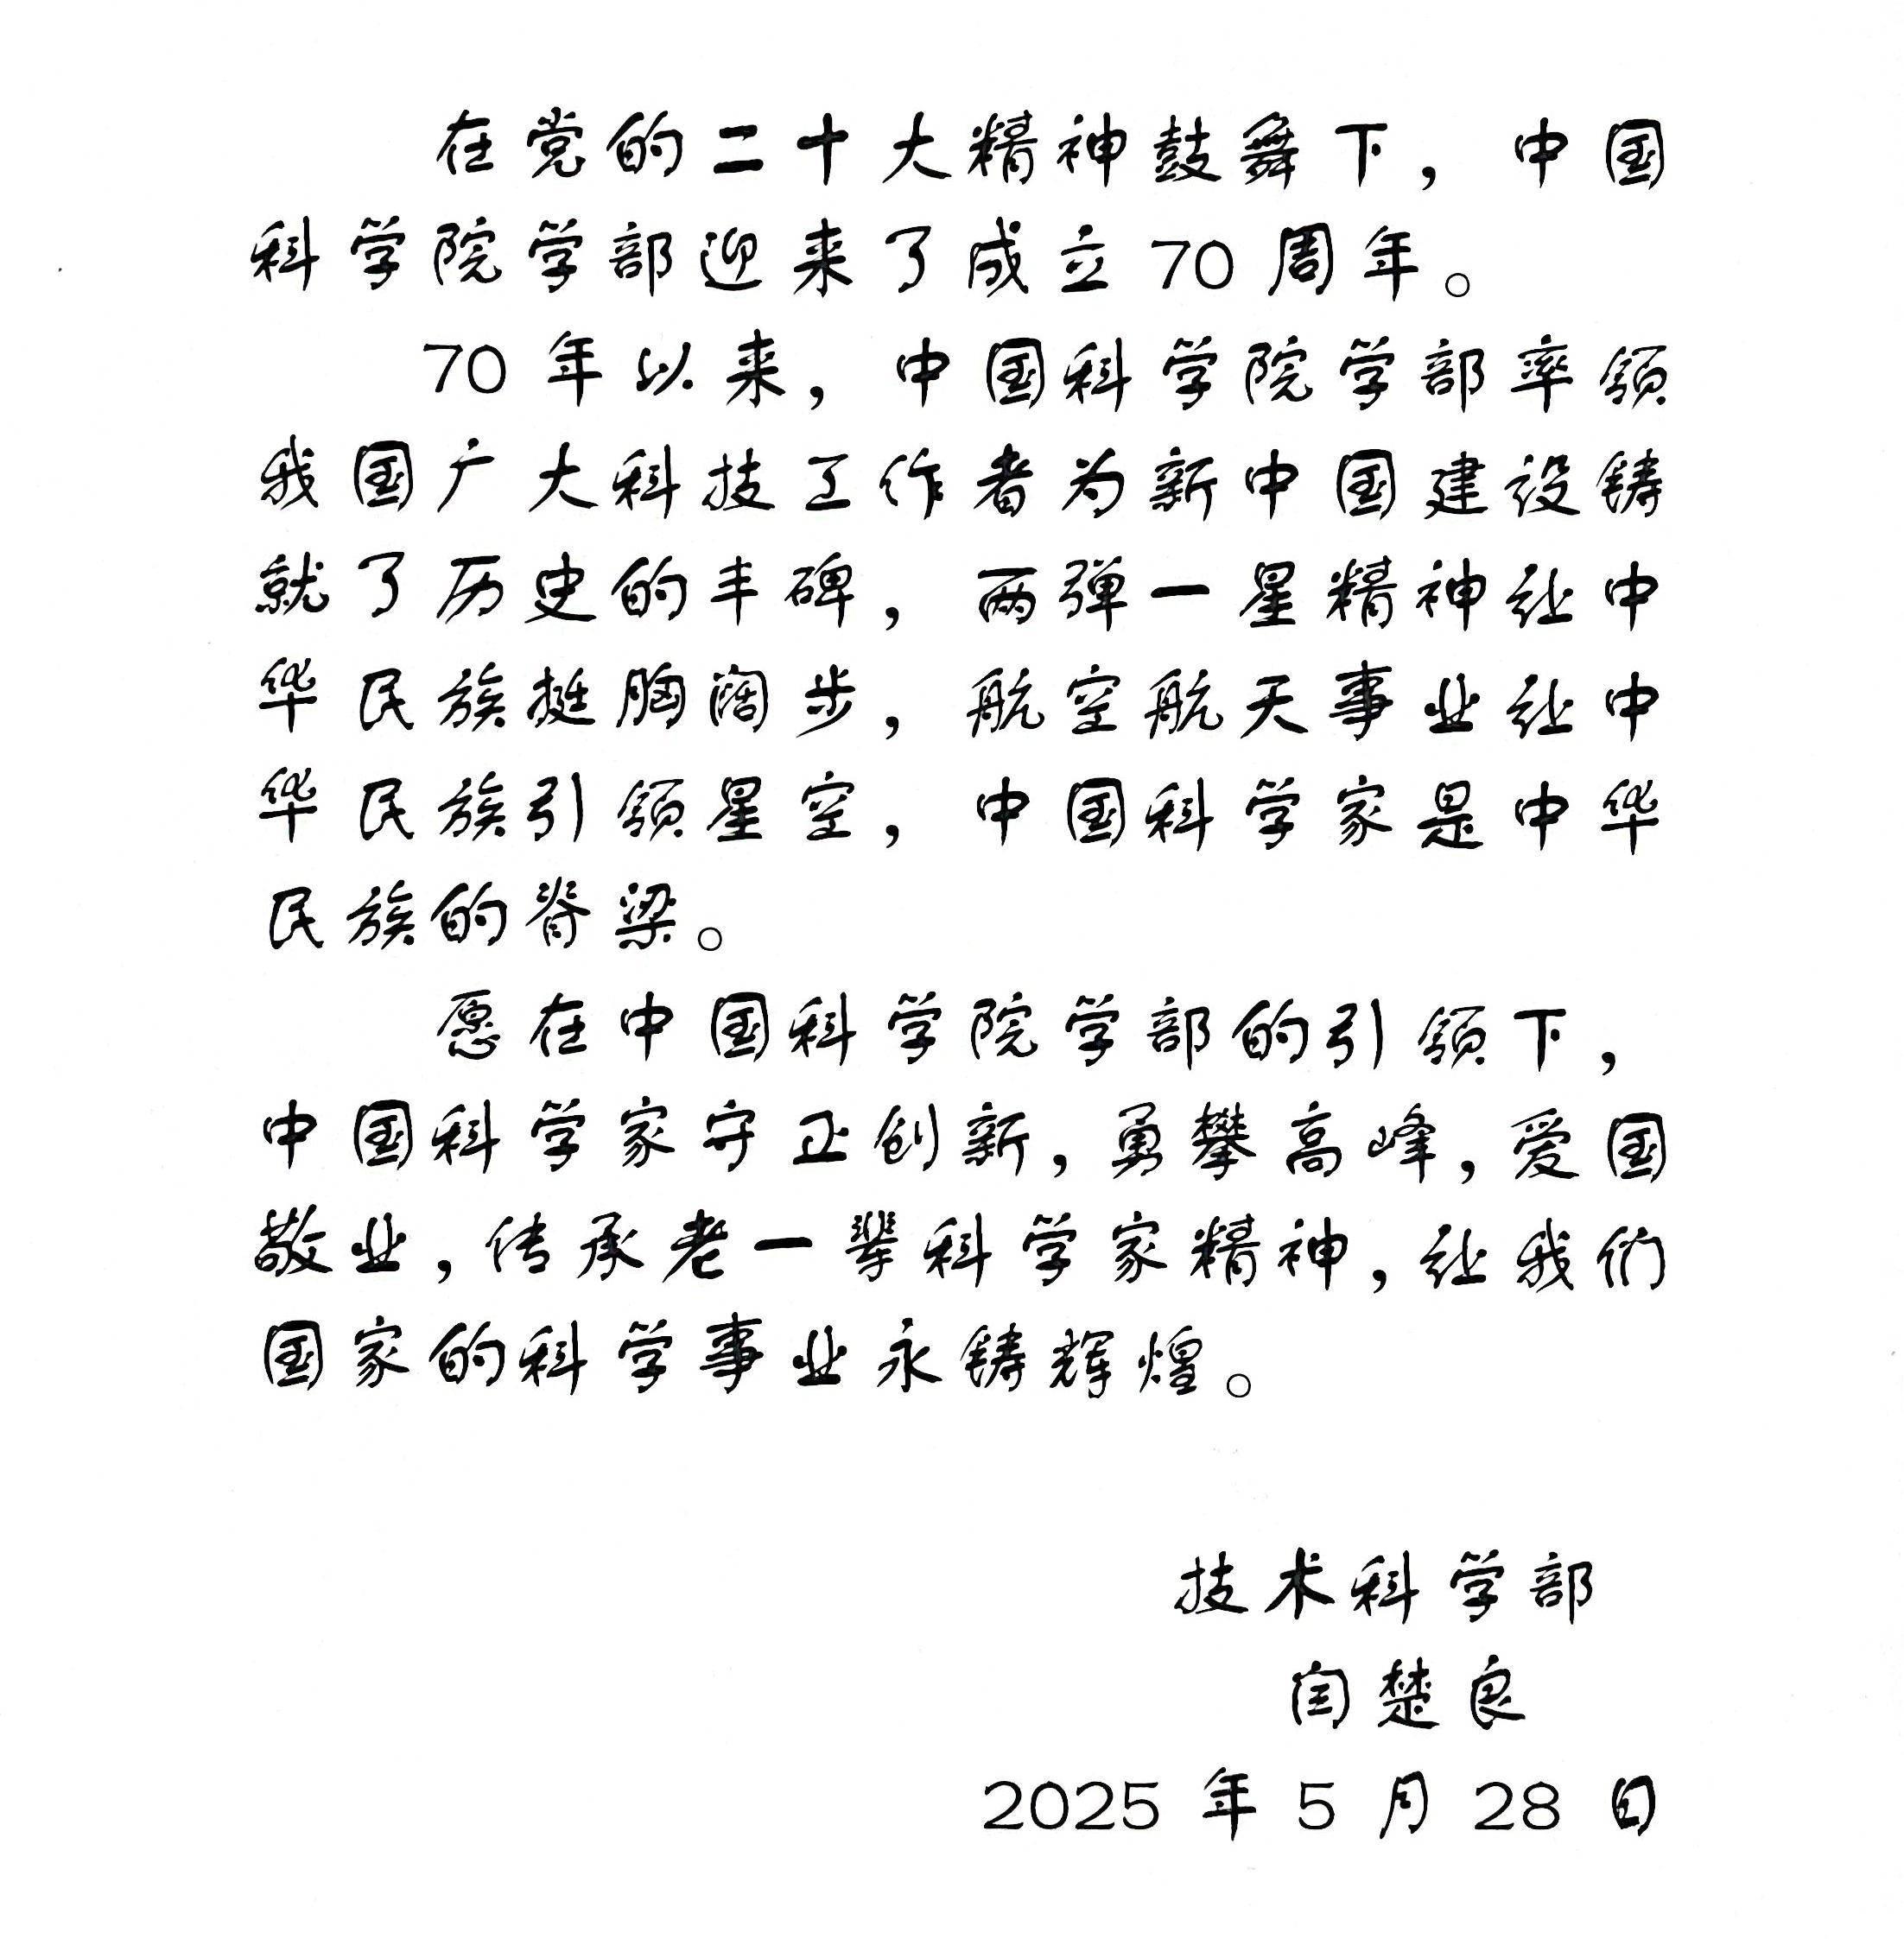 在党的二十大精神鼓舞下，中国
科学院学部迎来了成立70周年。
70年以来，中国科学院学部率领
我国广大科技工作者为新中国建设铸
就了历史的丰碑，两弹一星精神让中
华民族挺胸阔步，航空航天事业让中
华民族引领星空，中国科学家是中华
民族的脊梁。
愿在中国科学院学部的引领下，
中国科学家守正创新，勇攀高峰，爱国
敬业，传承老一辈科学家精神，让我们
国家的科学事业永铸辉煌。
技术科学部
闫楚良
2025年5月28日